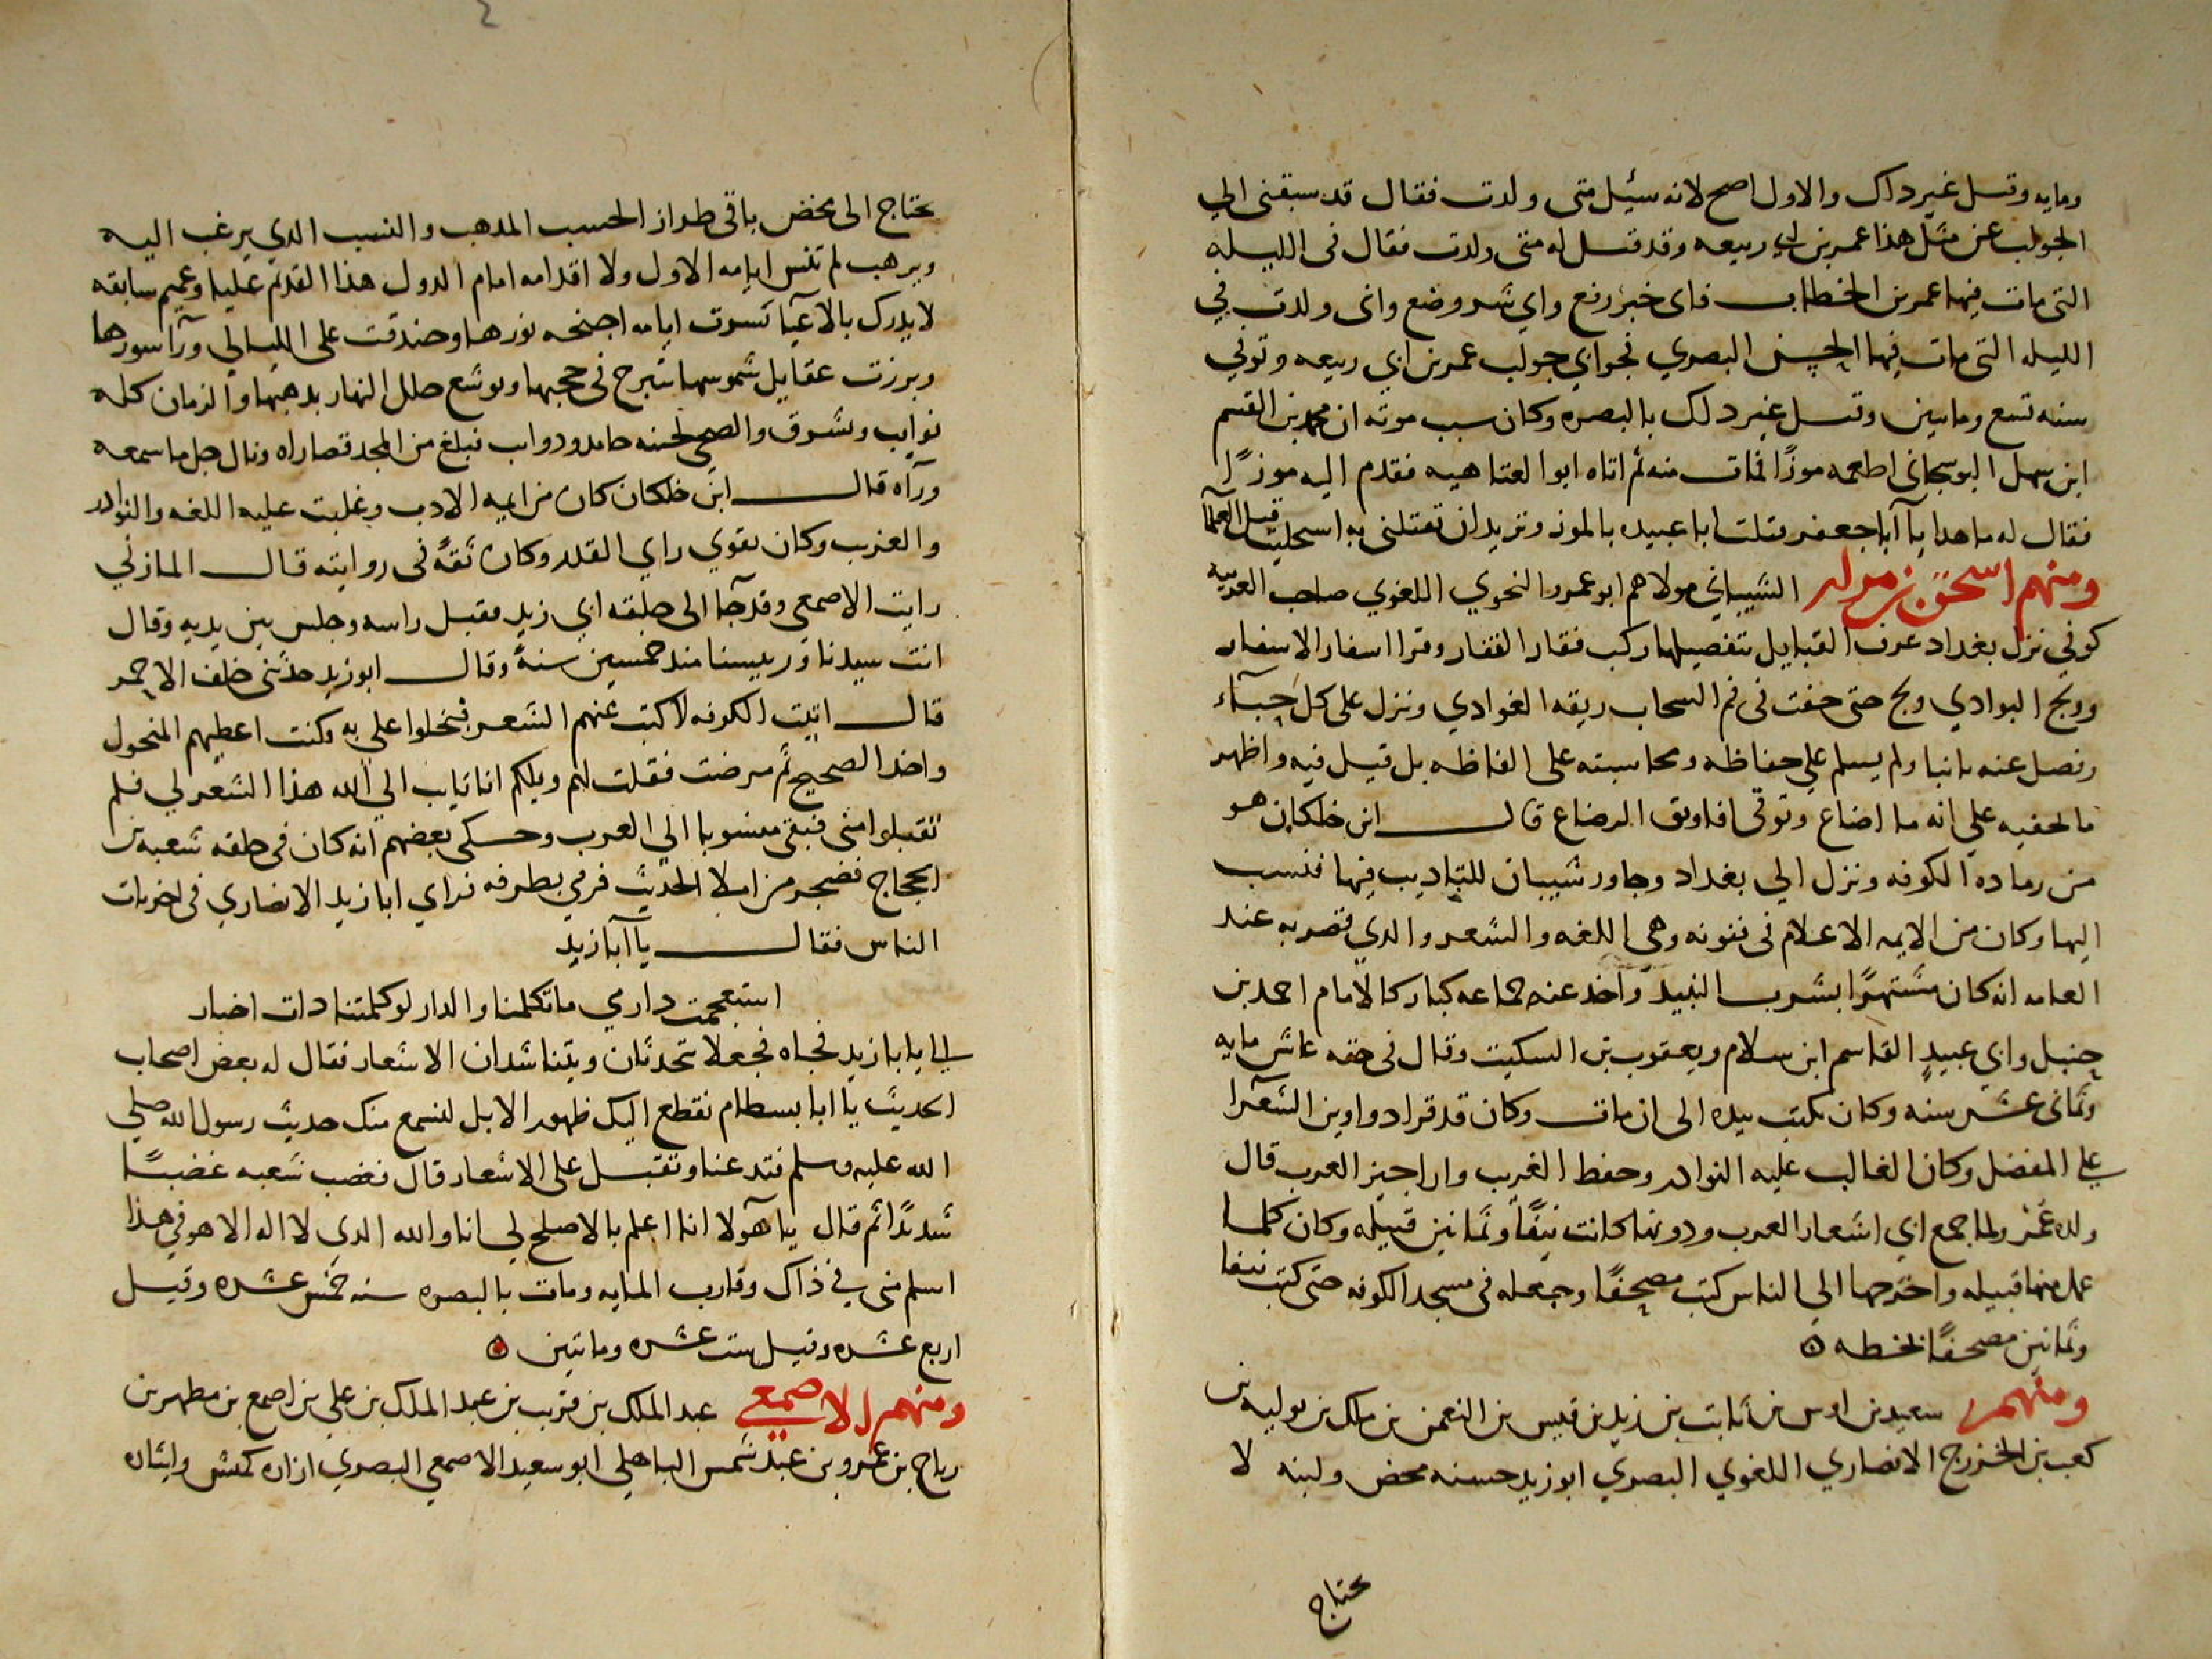 ومايه وقيل غير داك والاول اصح لانه سئيل متى ولدت فقال قد سبقنى الي
الجواب عن مثل هذا عمر بن ابي ربيعه وقد قيل له متى ولدت فقال فى الليله
التى مات فيها عمر بن الخطاب فاى خير رفع واي شر وضع وانى ولدت في
الليله التى مات فيها الحسن البصري فجوابي جواب عمر بن ابي ربيعه وتوفي
سنه تسع ومايتين وقيل غير دلك بالبصره وكان سبب موته ان محمد بن القسم
ابن سهل البوسجانى اطعمه موزًا فمات منه ثم اتاه ابو العتاهيه فقدم اليه موزًا
فقال له ما هدا يا آبا جعفر قتلت ابا عبيده بالموز وتريد ان تقتلنى به استحليت قتل العلمآ
ومنهم اسحق بن مرار الشيبانى مولاهم ابو عمرو النحوي اللغوي صاحب العربيه
كوفي نزل بغداد عرف القبايل بتفصيلها ركب فقار القفار وقرا اسفار الاسفار
وربح البوادي ولج حتى جفت فى فم السحاب ريقه الغوادي ونزل على كل حبآء
وفصل عنه بانبا ولم يسلم علي حفاظه ومحاسبته على الفاظه بل قيل فيه واظهر
ما لحفيه علي انه ما اضاع وتوقى افاويق الرضاع قال ابن خلكان هو
من رماده الكوفه ونزل الي بغداد وجاور شيبان للتاديب فيها فنسب
اليها وكان من الايمه الاعلام فى فنونه وهى اللغه والشعر والدي قصر به عند
العامه انه كان مشتهرًا بشرب النبيد وآخد عنه جماعه كبار كالامام احمد بن
حنبل وابي عبيد القاسم ابن سلام ويعقوب بن السكيت وقال فى حقه عاش مايه
وثمانى عشر سنه وكان يكتب بيده الى ان مات وكان قد قرا دواوين الشعرآ
علي المفضل وكان الغالب عليه النوادر وحفظ الغريب واراجيز العرب قال
ولده عمرو لما جمع ابي اشعار العرب ودونها كانت نيفًا وثمانين قبيله وكان كلما
عمل منها قبيله واخرجها الي الناس كتب مصحفًا وجعله فى مسجد الكوفه حتى كتب نيفا
وثمانين مصحفًا بخطه
ومنهم سعيد بن اوس بن ثابت بن زيد بن قيس بن النعمن بن ملك بن بن
كعب بن الخزرج الانصاري اللغوي البصري ابو زيد حسنه محض ولبنه لا
يحتاج
يحتاج الى مخض باقى طراز الحسب المدهب والنسب الدي يرغب اليه
ويرهب لم تنس ايامه الاول ولا اقدامه امام الدول هذا القديم عليا وعميم سابقه
لا يدرك بالاعيآ نسرت ايامه اجنحه نورها وخندقت على الليالي ورآ سورها
وبرزت عقايل شموسها تتبرج فى حجبها وتوشع حلل النهار بدهبها والزمان كله
نوايب وشرق والضحى لحسنه حامد ودواب فبلغ من المجد قصاراه ونال جل ما سمعه
ورآه قال ابن خلكان كان من ايمه الادب وغلبت عليه اللغه والنوادر
والغرب وكان يقوي راي القدر وكان ثقةً فى روايته قال المازني
رايت الاصمعى وقد جآ الى حلقه ابي زيد فقبل راسه وجلس بين يديه وقال
انت سيدنا ورييسنا مند خمسين سنةً وقال ابو زيد حدثنى خلف الاحمر
قال اتيت الكوفه لاكتب عنهم الشعر فبخلوا علي به وكنت اعطيهم المنحول
واخد الصحيح ثم مرضت فقلت لهم ويلكم انا تايب الي الله هذا الشعر لي فلم
تقبلوا منى فبقى منسوبا الي العرب وحكى بعضهم انه كان فى حلقه شعبه بن
الحجاج فضجر من املا الحديث فرمي بطرفه فراي ابا زيد الانصاري فى اخريات
الناس فقال يا آبا زيد
استعجمت دار مي ما تكلمنا والدار لو كلمتنا دات اخبار
الي يا با زيد فجاه فجعلا يتحدثان ويتناشدان الاشعار فقال له بعض اصحاب
الحديث يا ابا بسطام نقطع اليك ظهور الابل لنسمع منك حديث رسول الله صلي
الله عليه وسلم فتدعنا وتقبل على الاشعار قال فغضب شعبه غضبًا
شديدًا ثم قال يا هولا انا اعلم بالاصلح لي انا والله الدي لا اله الا هو في هذا
اسلم منى في ذاك وقارب المايه ومات بالبصره سنه خمس عشره وقيل
اربع عشره وقيل ست عشره ومايتين
ومنهم الاصمعي عبد الملك بن قريب بن عبد الملك بن علي بن اصمع بن مطهر بن
رباح بن عمرو بن عبد شمس الباهلي ابو سعيد الاصمعي البصري ازان كمش وايثان